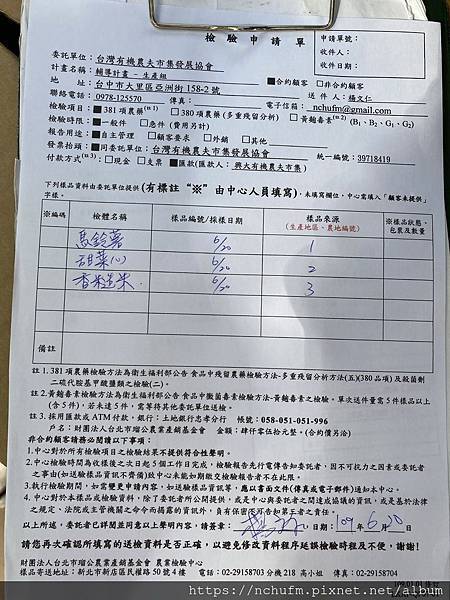 檢 驗 申 請 單
申請單號：
收件人：
收件日期：
委託單位：台灣有機農夫市集發展協會
計畫名稱：輔導計畫 - 生產組
■合約顧客 □非合約顧客
地 址：台中市大里區亞洲街 158-2 號
送 件 人：楊文仁
聯絡電話：0978-125570 傳真：
電子信箱：nchufm@gmail.com
檢驗項目：■381 項農藥(註1) □380 項農藥(多重殘留分析) □黃麴毒素(註2) (B₁、B₂、G₁、G₂)
檢驗時限：■一般件 □急件 (費用另計)
報告用途：■自主管理 □顧客要求 □外銷 □其他
發票抬頭：■同委託單位：台灣有機農夫市集發展協會
統一編號：39718419
付款方式(註3)：□現金 □支票 ■匯款(匯款人：興大有機農夫市集)
下列樣品資料由委託單位提供(有標註“※”由中心人員填寫)，未填寫欄位，中心需填入「顧客未提供」
字樣。
※編碼 檢體名稱 樣品編號/採樣日期 樣品來源 ※樣品狀態、
(生產地區、農地編號) 包裝及數量
馬鈴薯 6/20 1
甜菜心 6/20 2
香米造米 6/20 3
備註
註 1.381 項農藥檢驗方法為衛生福利部公告 食品中殘留農藥檢驗方法-多重殘留分析方法(五)(380 品項)及殺菌劑
二硫代胺基甲酸鹽類之檢驗(二)。
註 2.黃麴毒素檢驗方法為衛生福利部公告 食品中黴菌毒素檢驗方法-黃麴毒素之檢驗。單次送件量需 5 件樣品以上
(含 5 件)，若未達 5 件，需等待其他委託單位送檢。
註 3.採用匯款或 ATM 付款，銀行：土地銀行忠孝分行 帳號：058-051-051-996
戶名：財團法人台北市瑠公農業產銷基金會 金額：肆仟零伍拾元整。(合約價另洽)
非合約顧客請務必閱讀以下事項：
1.中心對於所有檢驗項目之檢驗結果不提供符合性聲明。
2.中心檢驗時間為收樣後之次日起 5 個工作日完成，檢驗報告先行電傳告知委託者，因不可抗力之因素或委託者
之事由(如送驗樣品資訊不齊備)致中心未能如期繳交檢驗報告者不在此限。
3.執行檢驗期間，如需變更申請內容，如送驗樣品資訊等，應以書面文件(傳真或電子郵件)通知本中心。
4.中心對於本樣品或檢驗資料，除了委託者所公開提供，或是中心與委託者之間達成協議的資訊，或是基於法律
之規定、法院或主管機關之命令而揭露的資訊外，負有保密不可告知第三者之責任。
以上所述，委託者已詳閱並同意以上聲明內容，請簽章： 日期：109 年 6 月 20 日
請您再次確認所填寫的送檢資料是否正確，以避免修改資料程序延誤檢驗時程及不便，謝謝!
財團法人台北市瑠公農業產銷基金會 農業檢驗中心
樣品寄送地址：新北市新店區民權路 50 號 4 樓 電話：02-29158703 分機 218 高小姐 傳真：02-29158704
https://nchufm.pixnet.net/album